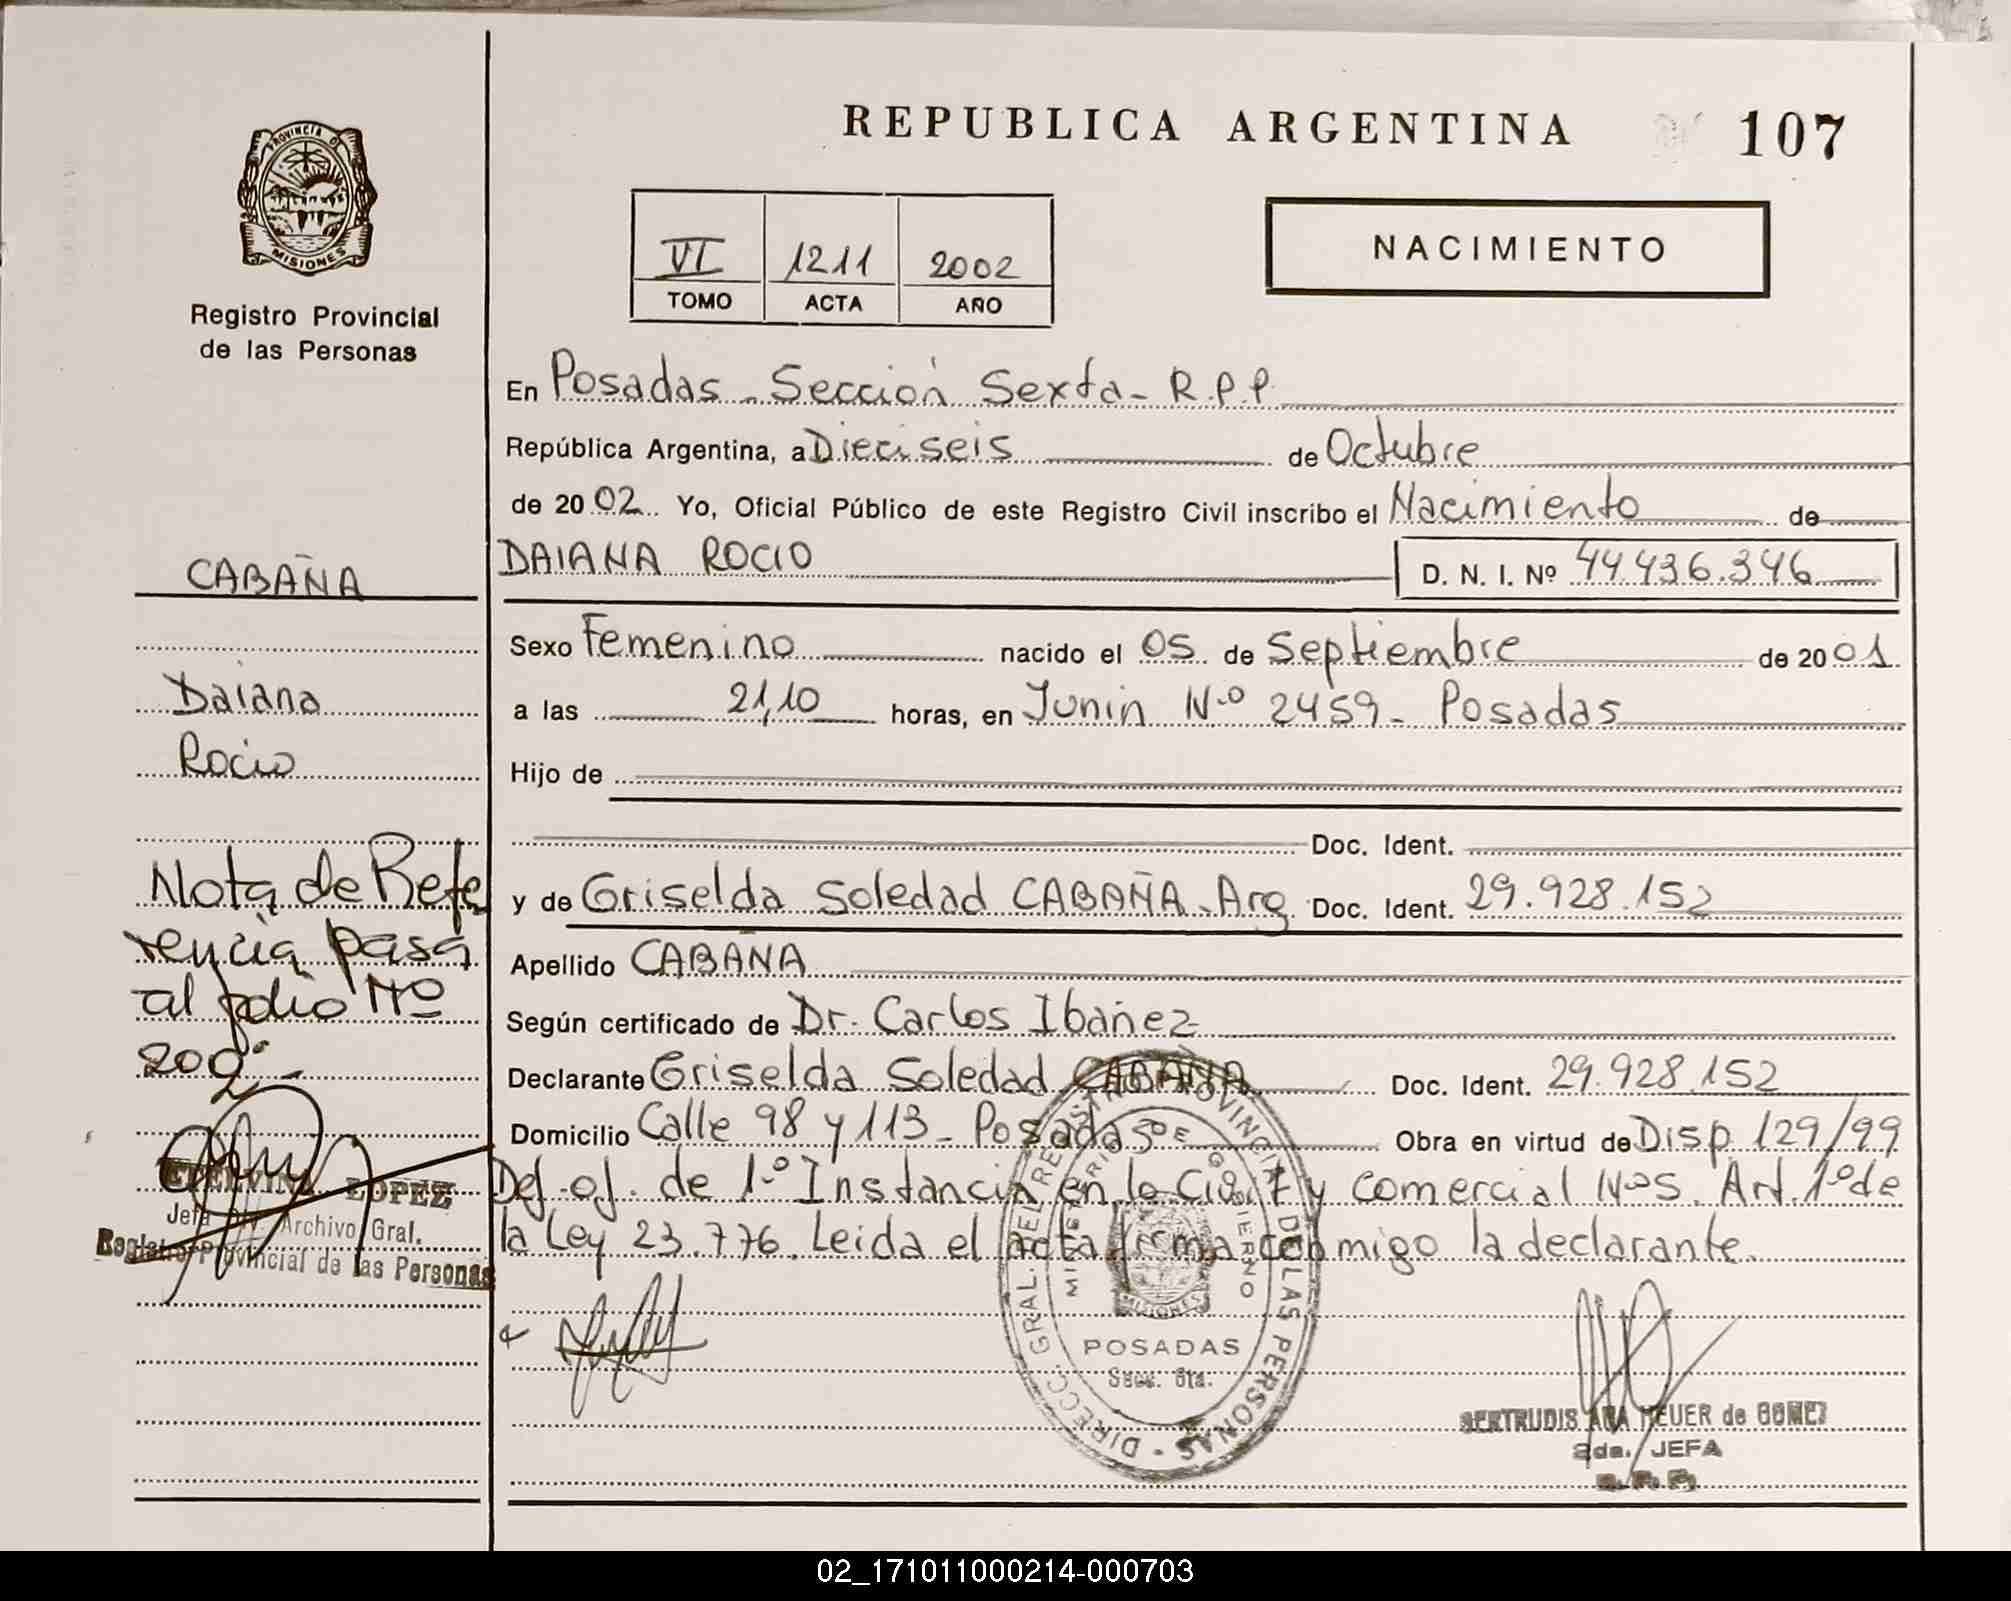 REPUBLICA ARGENTINA
107
PROVINCIA DE
MISIONES
Registro Provincial
de las Personas
VI 1211 2002
TOMO ACTA AÑO
NACIMIENTO
En Posadas - Sección Sexta - R.P.P.
República Argentina, a Dieciseis de Octubre
de 2002 Yo, Oficial Público de este Registro Civil inscribo el Nacimiento de
DAIANA ROCIO D. N. I. Nº 44.436.346
Sexo Femenino nacido el 05 de Septiembre de 2001
a las 21,10 horas, en Junin N.º 2459 - Posadas
Hijo de
Doc. Ident.
y de Griselda Soledad CABAÑA - Arg. Doc. Ident. 29.928.152
Apellido CABAÑA
Según certificado de Dr. Carlos Ibañez
Declarante Griselda Soledad CABAÑA Doc. Ident. 29.928.152
Domicilio Calle 98 y 113 - Posadas Obra en virtud de Disp. 129/99
Def. of. de 1.º Instancia en lo Civil y Comercial Nº 5. Art. 1º de
la Ley 23.776. Leida el acta firma conmigo la declarante.
CABAÑA
Daiana
Rocio
Nota de Refe
rencia pasa
al folio Nº
209.-
LOPEZ
Jefa Archivo Gral.
Registro Provincial de las Personas
DIRECC. GRAL. DEL REGISTRO PROVINCIAL DE LAS PERSONAS
MINISTERIO DE GOBIERNO
MISIONES
POSADAS
Secc. 6ta.
GERTRUDIS ANA MEUER de GOMEZ
2da. JEFA
R.P.P.
02_171011000214-000703